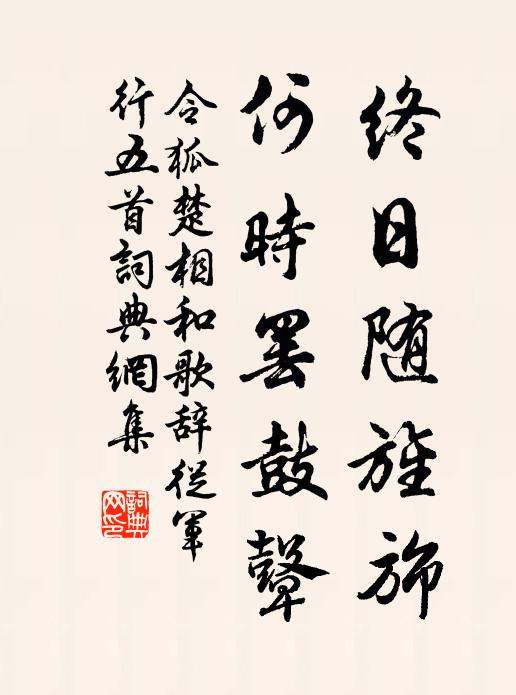 終日随旌旆
何時罢鼓鼙
令狐楚相和歌辞從軍
行五首詞典網集
詞典网印